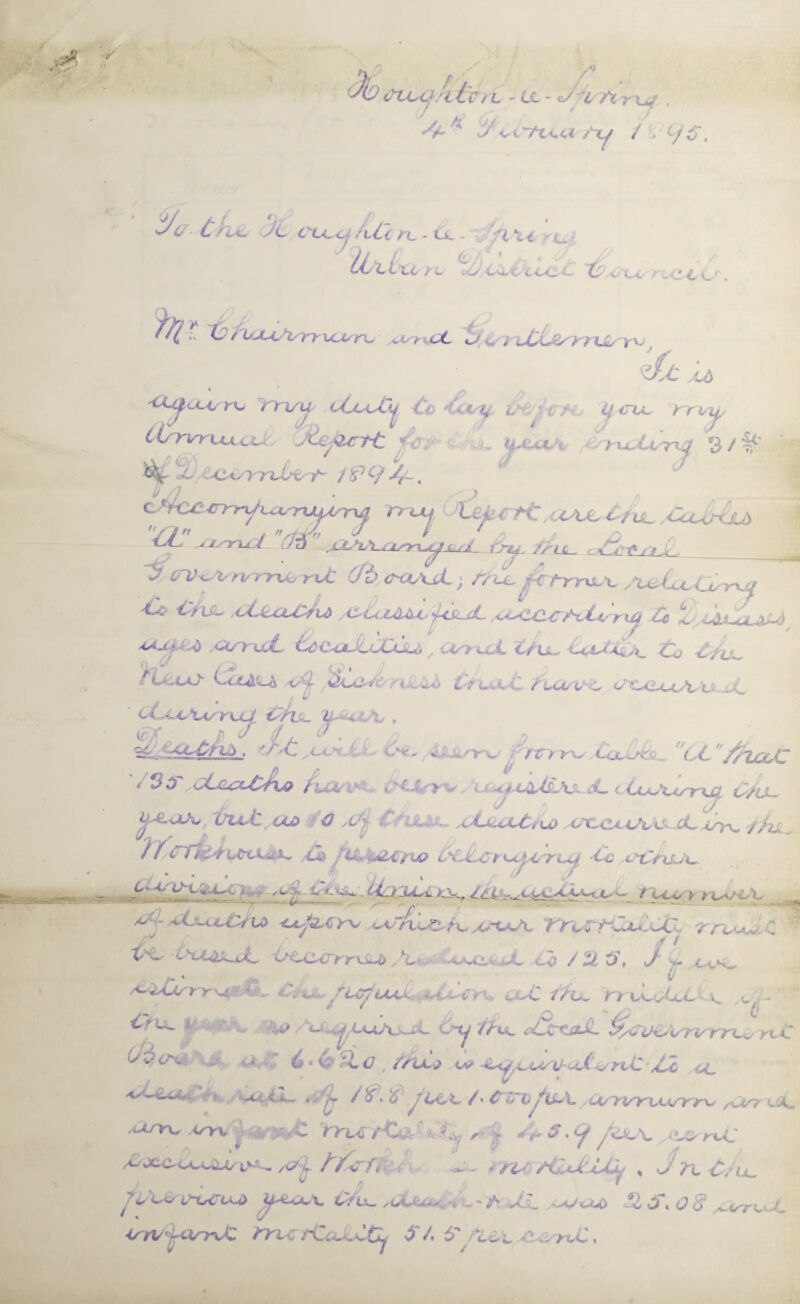 Houghton-le-Spring.
4th February 1895.
To the Houghton-le-Spring
Urban District Council.
Mr. Chairman and Gentlemen,
It is
again my duty to lay before you my
Annual Report for the year ending 31st
of December 1894.
Accompanying my Report are the tables
"A" and "B" arranged by the Local
Government Board; the former relating
to the deaths classified according to Diseases,
ages and localities, and the latter to the
New Cases of Sickness that have occurred
during the year.
Deaths. It will be seen from table "A" that
135 deaths have been registered during the
year, but as 10 of these deaths occurred in the
Workhouse to persons belonging to other
divisions of the Union, the actual number
of deaths upon which our mortality must
be based becomes reduced to 125. If we
estimate the population at the middle of
the year as required by the Local Government
Board at 6.620, this is equivalent to a
death rate of 18.8 per 1.000 per annum and
an infant mortality of 45.9 per cent
exclusive of mortality. In the
previous year the death-rate was 25.08 and
infant mortality 51.5 per cent.